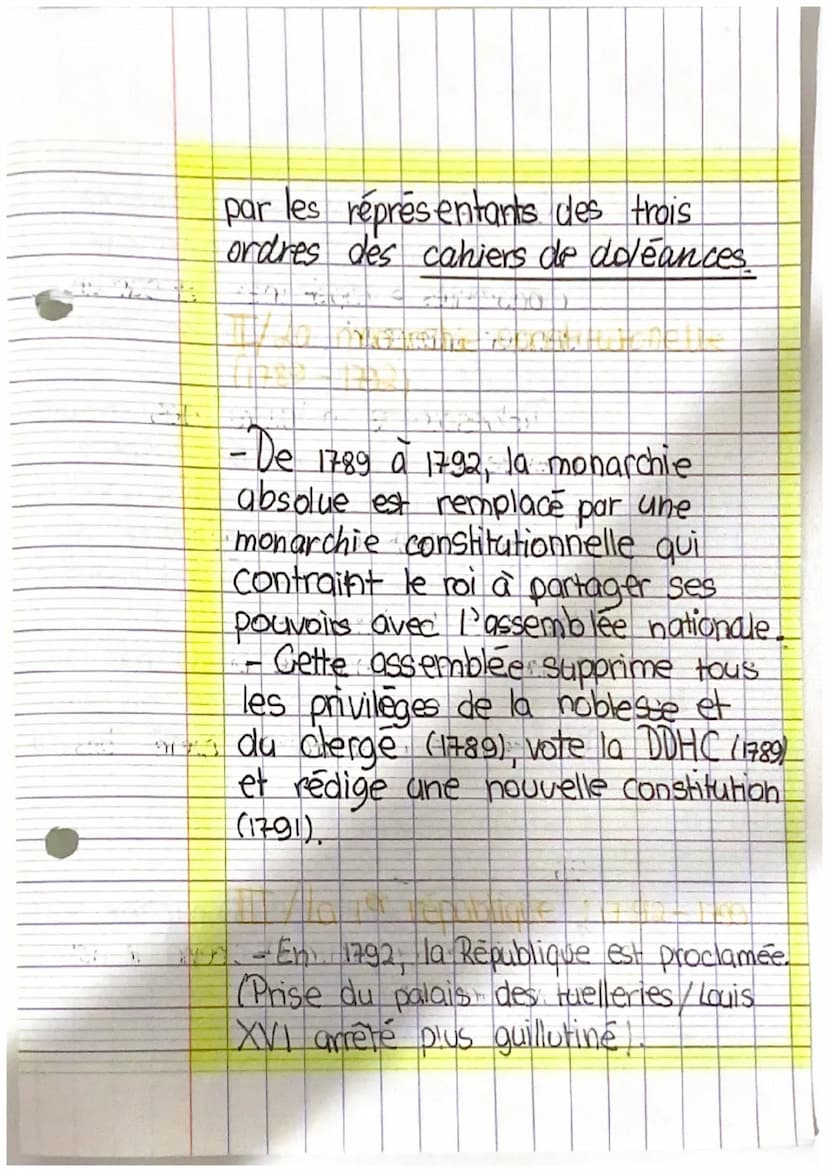 par les réprésentants des trois
ordres des cahiers de doléances.
II/La monarchie constitutionelle
(1789-1792)
-De 1789 à 1792, la monarchie
absolue est remplacé par une
monarchie constitutionnelle qui
contraint le roi à partager ses
pouvoirs avec l'assemblée nationale.
- Cette assemblée supprime tous
les privilèges de la noblesse et
du clergé (1789), vote la DDHC (1789)
et rédige une nouvelle constitution
(1791).
III/la 1er république : 1792-1799
-En 1792, la République est proclamée.
(Prise du palais des tuelleries/Louis
XVI arrêté plus guillutiné).